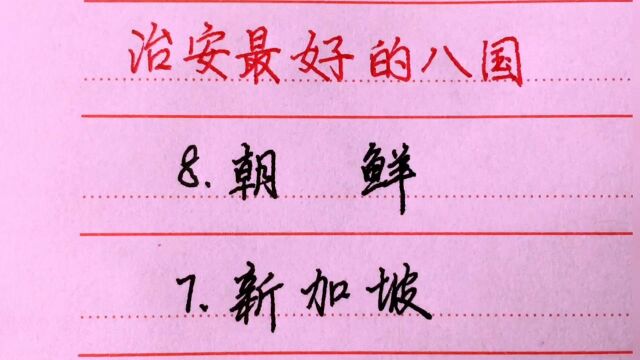 治安最好的八国
8.朝 鲜
7.新加坡